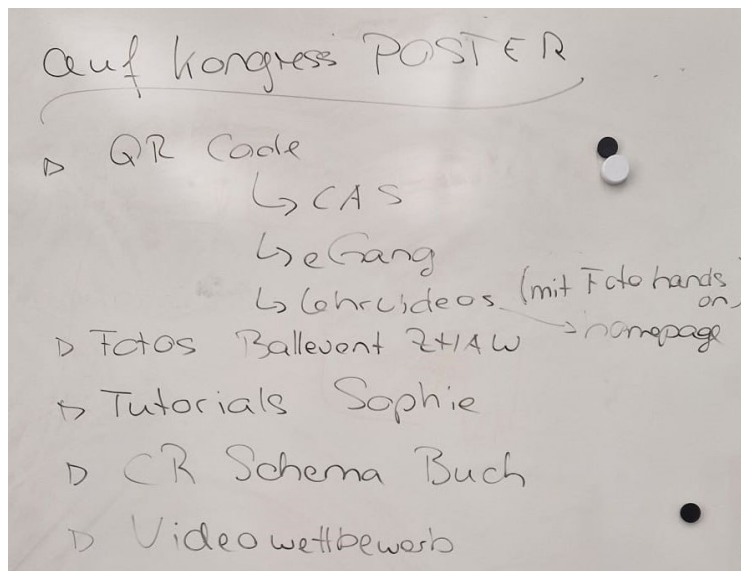 auf Kongress POSTER
▷ QR Code
↳ CAS
↳ eGang
↳ Lehrvideos (mit Foto hands on)
→ homepage
▷ Fotos Ballevent ZHAW
▷ Tutorials Sophie
▷ CR Schema Buch
▷ Videowettbewerb